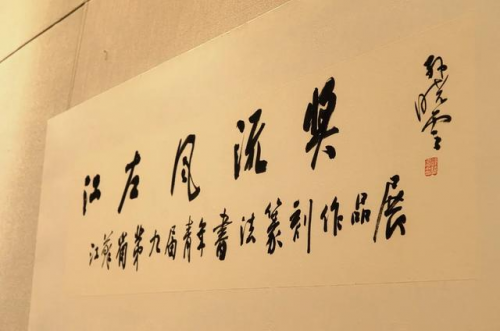 江左风流奖
江苏省第九届青年书法篆刻作品展
孙晓云